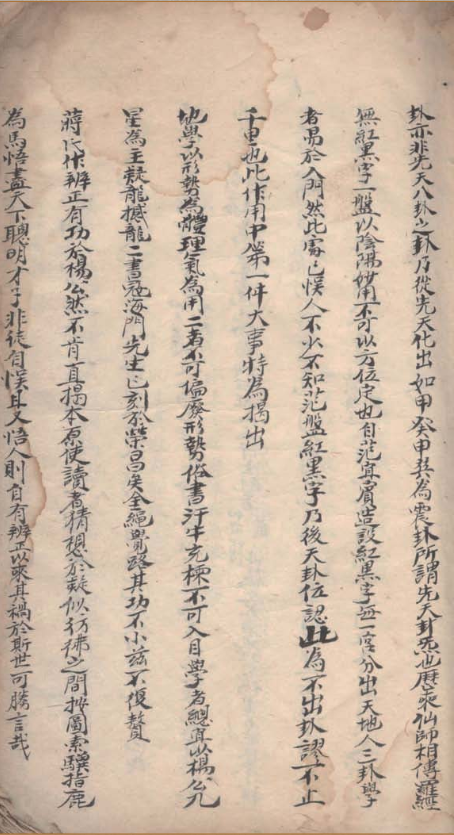 卦亦非先天八卦之卦乃從先天化出如甲癸申兵為震卦所謂先天卦炁也歷来仙師相傳羅經
無紅黑字一盤以陰陽妙用不可以方位定也自范宜賓造設紅黑字每一宮分出天地人三卦學
者易於入門然此處已悞人不少不知范盤紅黑字乃後天卦位認此為不出卦謬不止
千里也此作用中第一件大事特為揭出
地學以形勢為體理氣為用二者不可偏廢形勢俗書汗牛充棟不可入目學者總宜以楊公九
星為主疑龍撼龍二書冠海門先生已刻於榮昌矣金繩覺路其功不小茲不復贅
蔣氏作辨正有功於楊公然不肯一直揭本原使讀者猜想於疑似彷彿之間抄圖索驥指鹿
為馬悟盡天下聰明才子非徒自悞且又悟人則自有辨正以來其禍於斯世可勝言哉